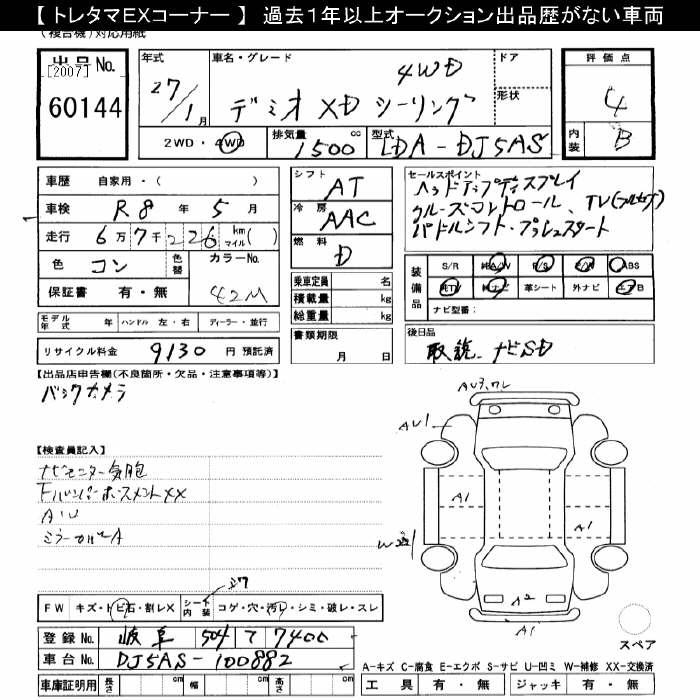 【 トレタマEXコーナー 】 過去１年以上オークション出品歴がない車両
(複合機)対応用紙
出品 No. [2007] 60144
年式 27/1月
車名・グレード 4WD デミオ XD シーリング
ドア
形状
2WD・4WD 排気量 1500 cc 型式 LDA-DJ5AS
評価点 4
内装 B
車歴 自家用・( )
車検 R8年 5月
走行 6万7千226 km マイル( )
色 コン 色替 カラーNo. 42M
保証書 有・無
シフト AT
冷房 AAC
燃料 D
乗車定員 名
積載量 kg
総重量 kg
書類期限 月 日
セールスポイント
ヘッドアップディスプレイ
クルーズコントロール、TV(フルセグ)
パドルシフト・プッシュスタート
装備品 S/R 純A/W P/S P/W ABS
純TV 純ナビ 革シート 外ナビ エアB
ナビ型番:
モデル年式 年 ハンドル 左・右 ディーラー・並行
リサイクル料金 9130 円 預託済
後日品
取説、ナビSD
【出品店申告欄(不良箇所・欠品・注意事項等)】
バックカメラ
【検査員記入】
ナビモニター気胞
A・U
ミラーカバーA
A1
A1
A2
A1
FW キズ・トビ石・割レX シート内装 コゲ・穴・汚レ・シミ・破レ・スレ
登録 No. 岐阜 504 て 7400
車台 No. DJ5AS-100882
スペア
A-キズ C-腐食 E-エクボ S-サビ U-凹ミ W-補修 XX-交換済
車庫証明用 長さ cm 幅 cm 高さ cm
工具 有・無 ジャッキ 有・無